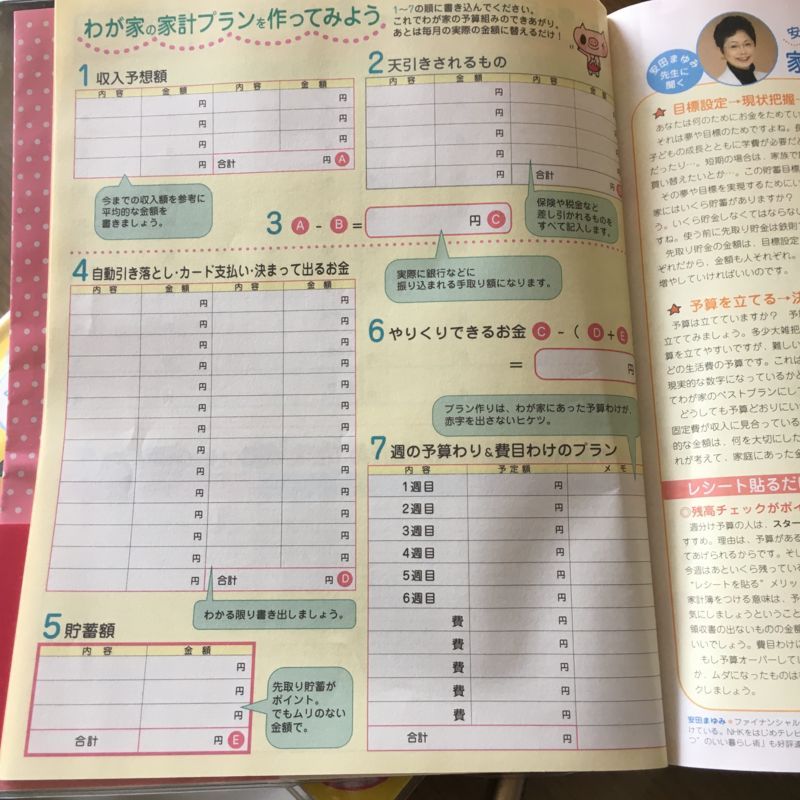 わが家の家計プランを作ってみよう
1〜7の順に書き込んでください。
これでわが家の予算組みのできあがり。
あとは毎月の実際の金額に替えるだけ!
1 収入予想額
内容 金額 内容 金額
円 円
円 円
円 円
円 合計 円 A
今までの収入額を参考に
平均的な金額を
書きましょう。
2 天引きされるもの
内容 金額 内容 金
円
円
円
円
円 合計
保険や税金など
差し引かれるものを
すべて記入します。
3 A - B = 円 C
実際に銀行などに
振り込まれる手取り額になります。
4 自動引き落とし・カード支払い・決まって出るお金
内容 金額 内容 金額
円 円
円 円
円 円
円 円
円 円
円 円
円 円
円 円
円 円
円 円
円 円
円 円
円 円
円 合計 円 D
わかる限り書き出しましょう。
5 貯蓄額
内容 金額
円
円
円
合計 円 E
先取り貯蓄が
ポイント。
でもムリのない
金額で。
6 やりくりできるお金 C - ( D + E
= 円
プラン作りは、わが家にあった予算わけが、
赤字を出さないヒケツ。
7 週の予算わり&費目わけのプラン
内容 予定額 メモ
1週目 円
2週目 円
3週目 円
4週目 円
5週目 円
6週目 円
費 円
費 円
費 円
費 円
費 円
合計 円
安田まゆみ
先生に
聞く
安
家
目標設定→現状把握→
あなたは何のためにお金をためてい
それは夢や目標のためですよね。長
子どもの成長とともに学費が必要だと
だったり…。短期の場合は、家族で旅
買い替えたいとか…。この貯蓄目標
その夢や目標を実現するためにい
家にはいくら貯蓄がありますか?
う。いくら貯金しなくてはならない
すね。使う前に先取り貯金は鉄則
先取り貯金の金額は、目標設定
ぞれだから、金額も人それぞれ。
増やしていければいいのです。
予算を立てる→決
予算は立てていますか? 予
立ててみましょう。多少大雑把
算を立てやすいですが、難しい
どの生活費の予算です。これは
現実的な数字になっているかど
てわが家のベストプランにして
どうしても予算どおりにいか
固定費が収入に見合っている
的な金額は、何を大切にした
れが考えて、家庭にあった金
レシート貼るだけ
◎残高チェックがポイ
週分け予算の人は、スター
すすめ。理由は、予算がある
てあげられるからです。そし
今週はあといくら残っている
“レシートを貼る”メリッ
家計簿をつける意味は、予
気にしましょうということ
領収書の出ないものの金額
いいでしょう。費目わけに
もし予算オーバーして
か、ムダになったものは
クしましょう。
安田まゆみ●ファイナンシャル
けている。NHKをはじめテレビ
つ”のいい暮らし術」も好評連